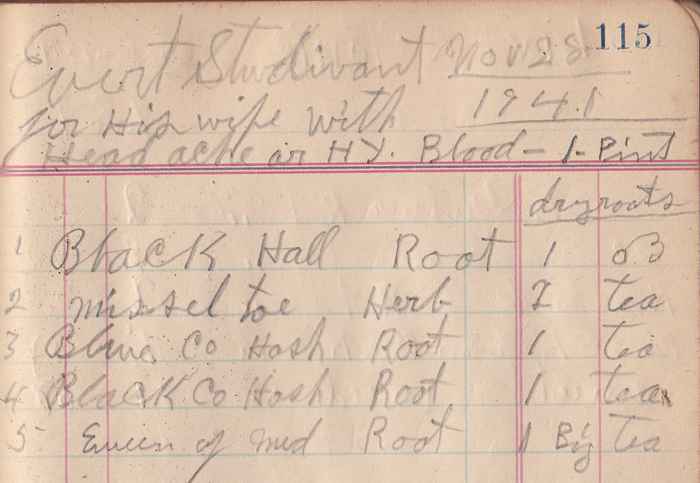 115
Evert Studivant Nov 28
for His wife With 1941
Head ache or HY. Blood - 1 - Pint
dry roots
1 Black Hall Root 1 oz
2 missel toe Herb 2 tea
3 Blue Co Hosh Root 1 tea
4 Black Co Hosh Root 1 tea
5 Queen of med Root 1 Big tea